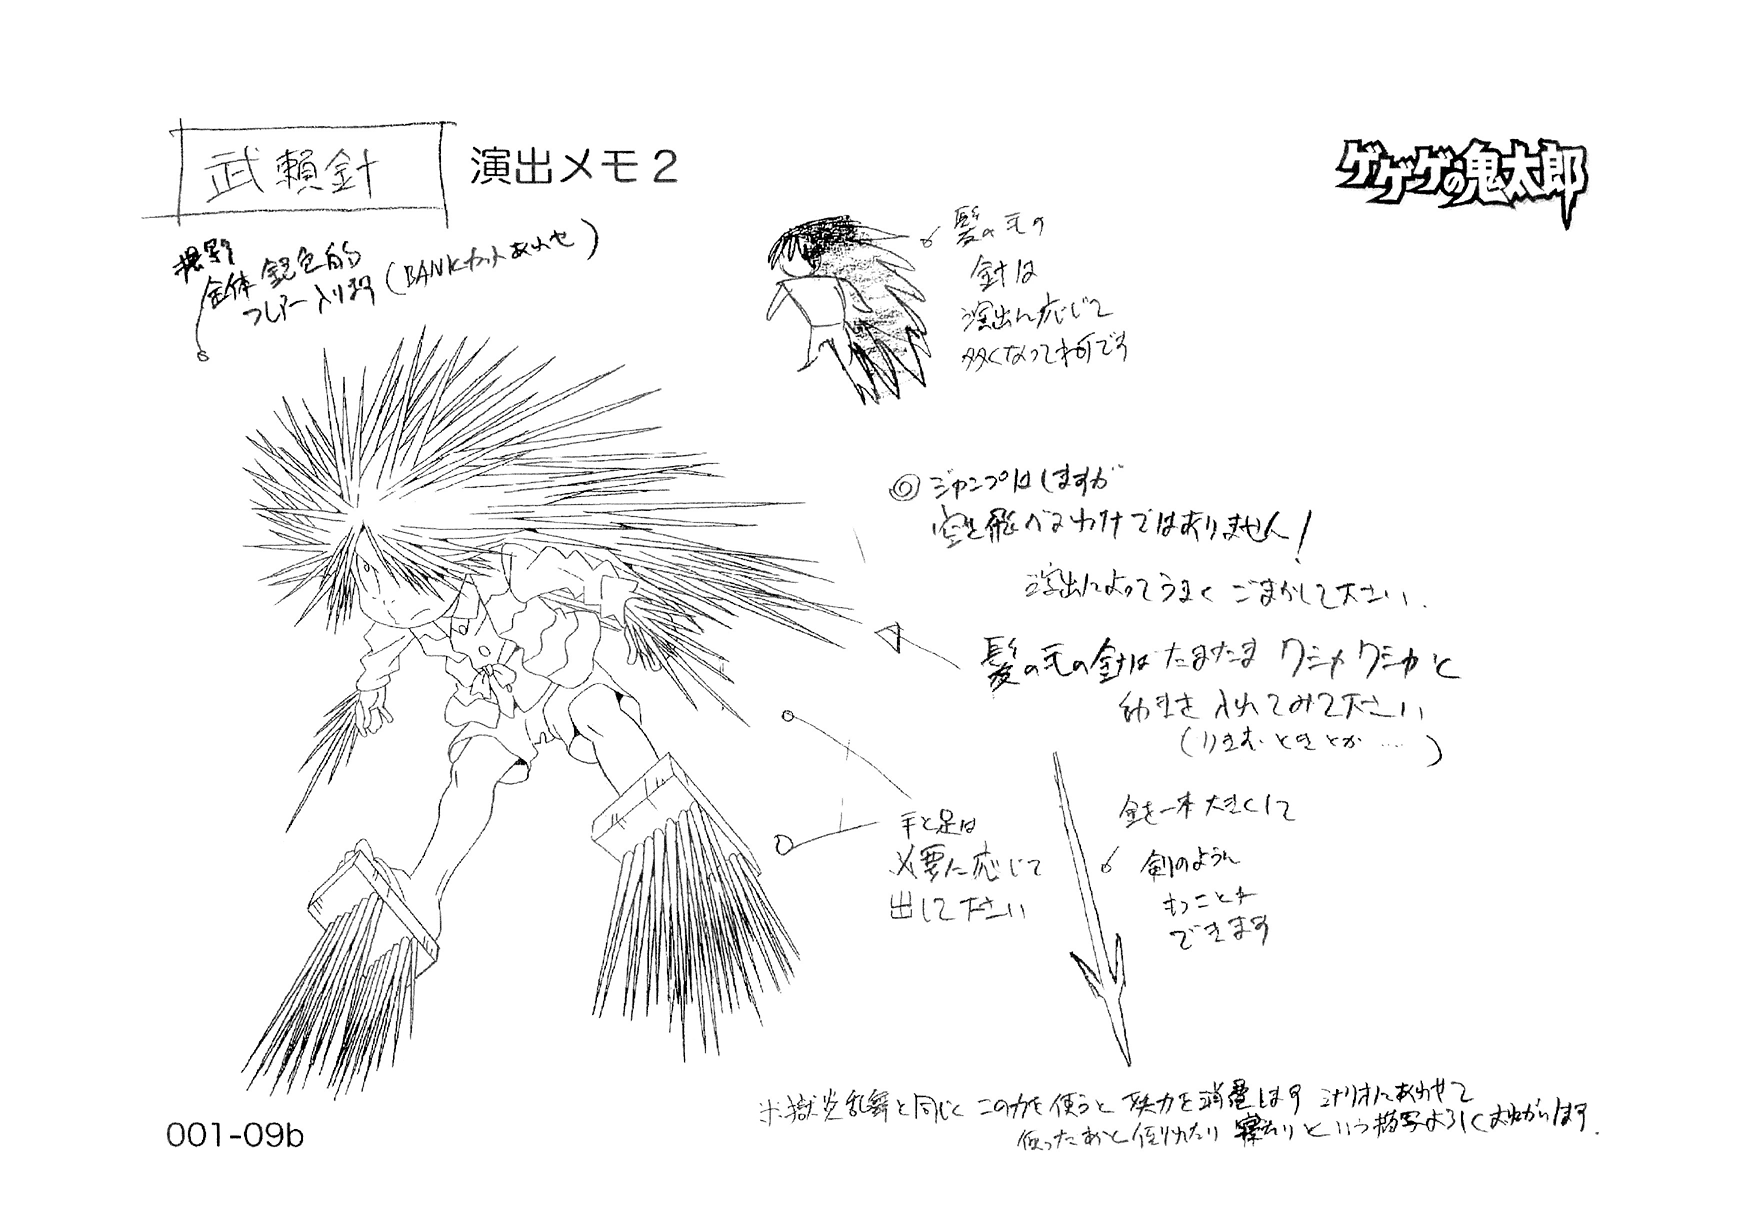 武頼針 演出メモ2
ゲゲゲの鬼太郎
撮影
全体銀色的
フレアー入ります(BANKカットあわせ)
髪の毛の
針は
演出に応じて
多くなって可です
◎ジャンプはしますが
空を飛べるわけではありません!
演出によってうまくごまかして下さい.
髪の毛の針はたまたまワシャワシャと
動きを入れてみて下さい
(りきむときとか……)
手と足は
必要に応じて
出して下さい
針を一本大きくして
剣のように
もつことが
できます
※獄炎乱舞と同じくこの力を使うと妖力を消費します シナリオにあわせて
使ったあと倒れたり寝たりという描写よろしくおねがいします.
001-09b